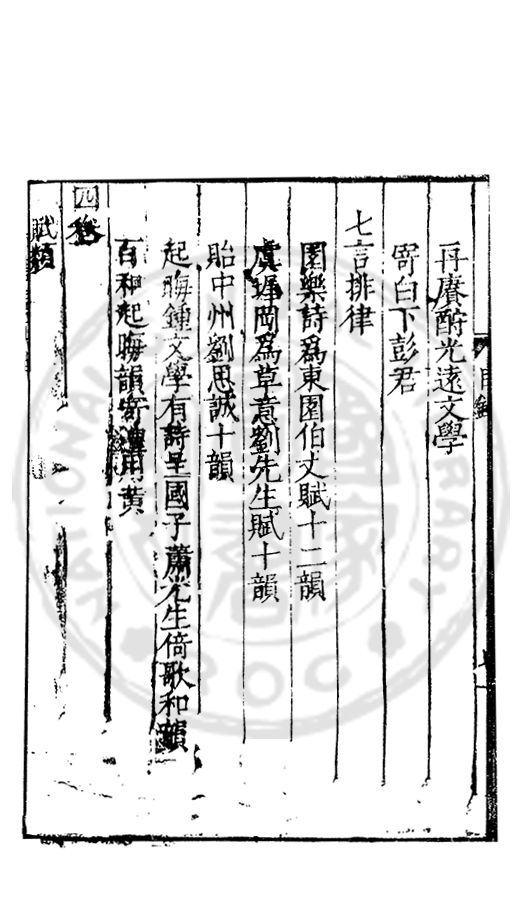 再賡酧光遠文學
寄白下彭君
七言排律
園樂詩爲東園伯丈賦十二韻
虞墀岡爲草意劉先生賦十韻
貽中州劉思誠十韻
起晦鍾文學有詩呈國子蕭先生倚歌和韻
百和起晦韻寄用黃
卷
賦類
目錄